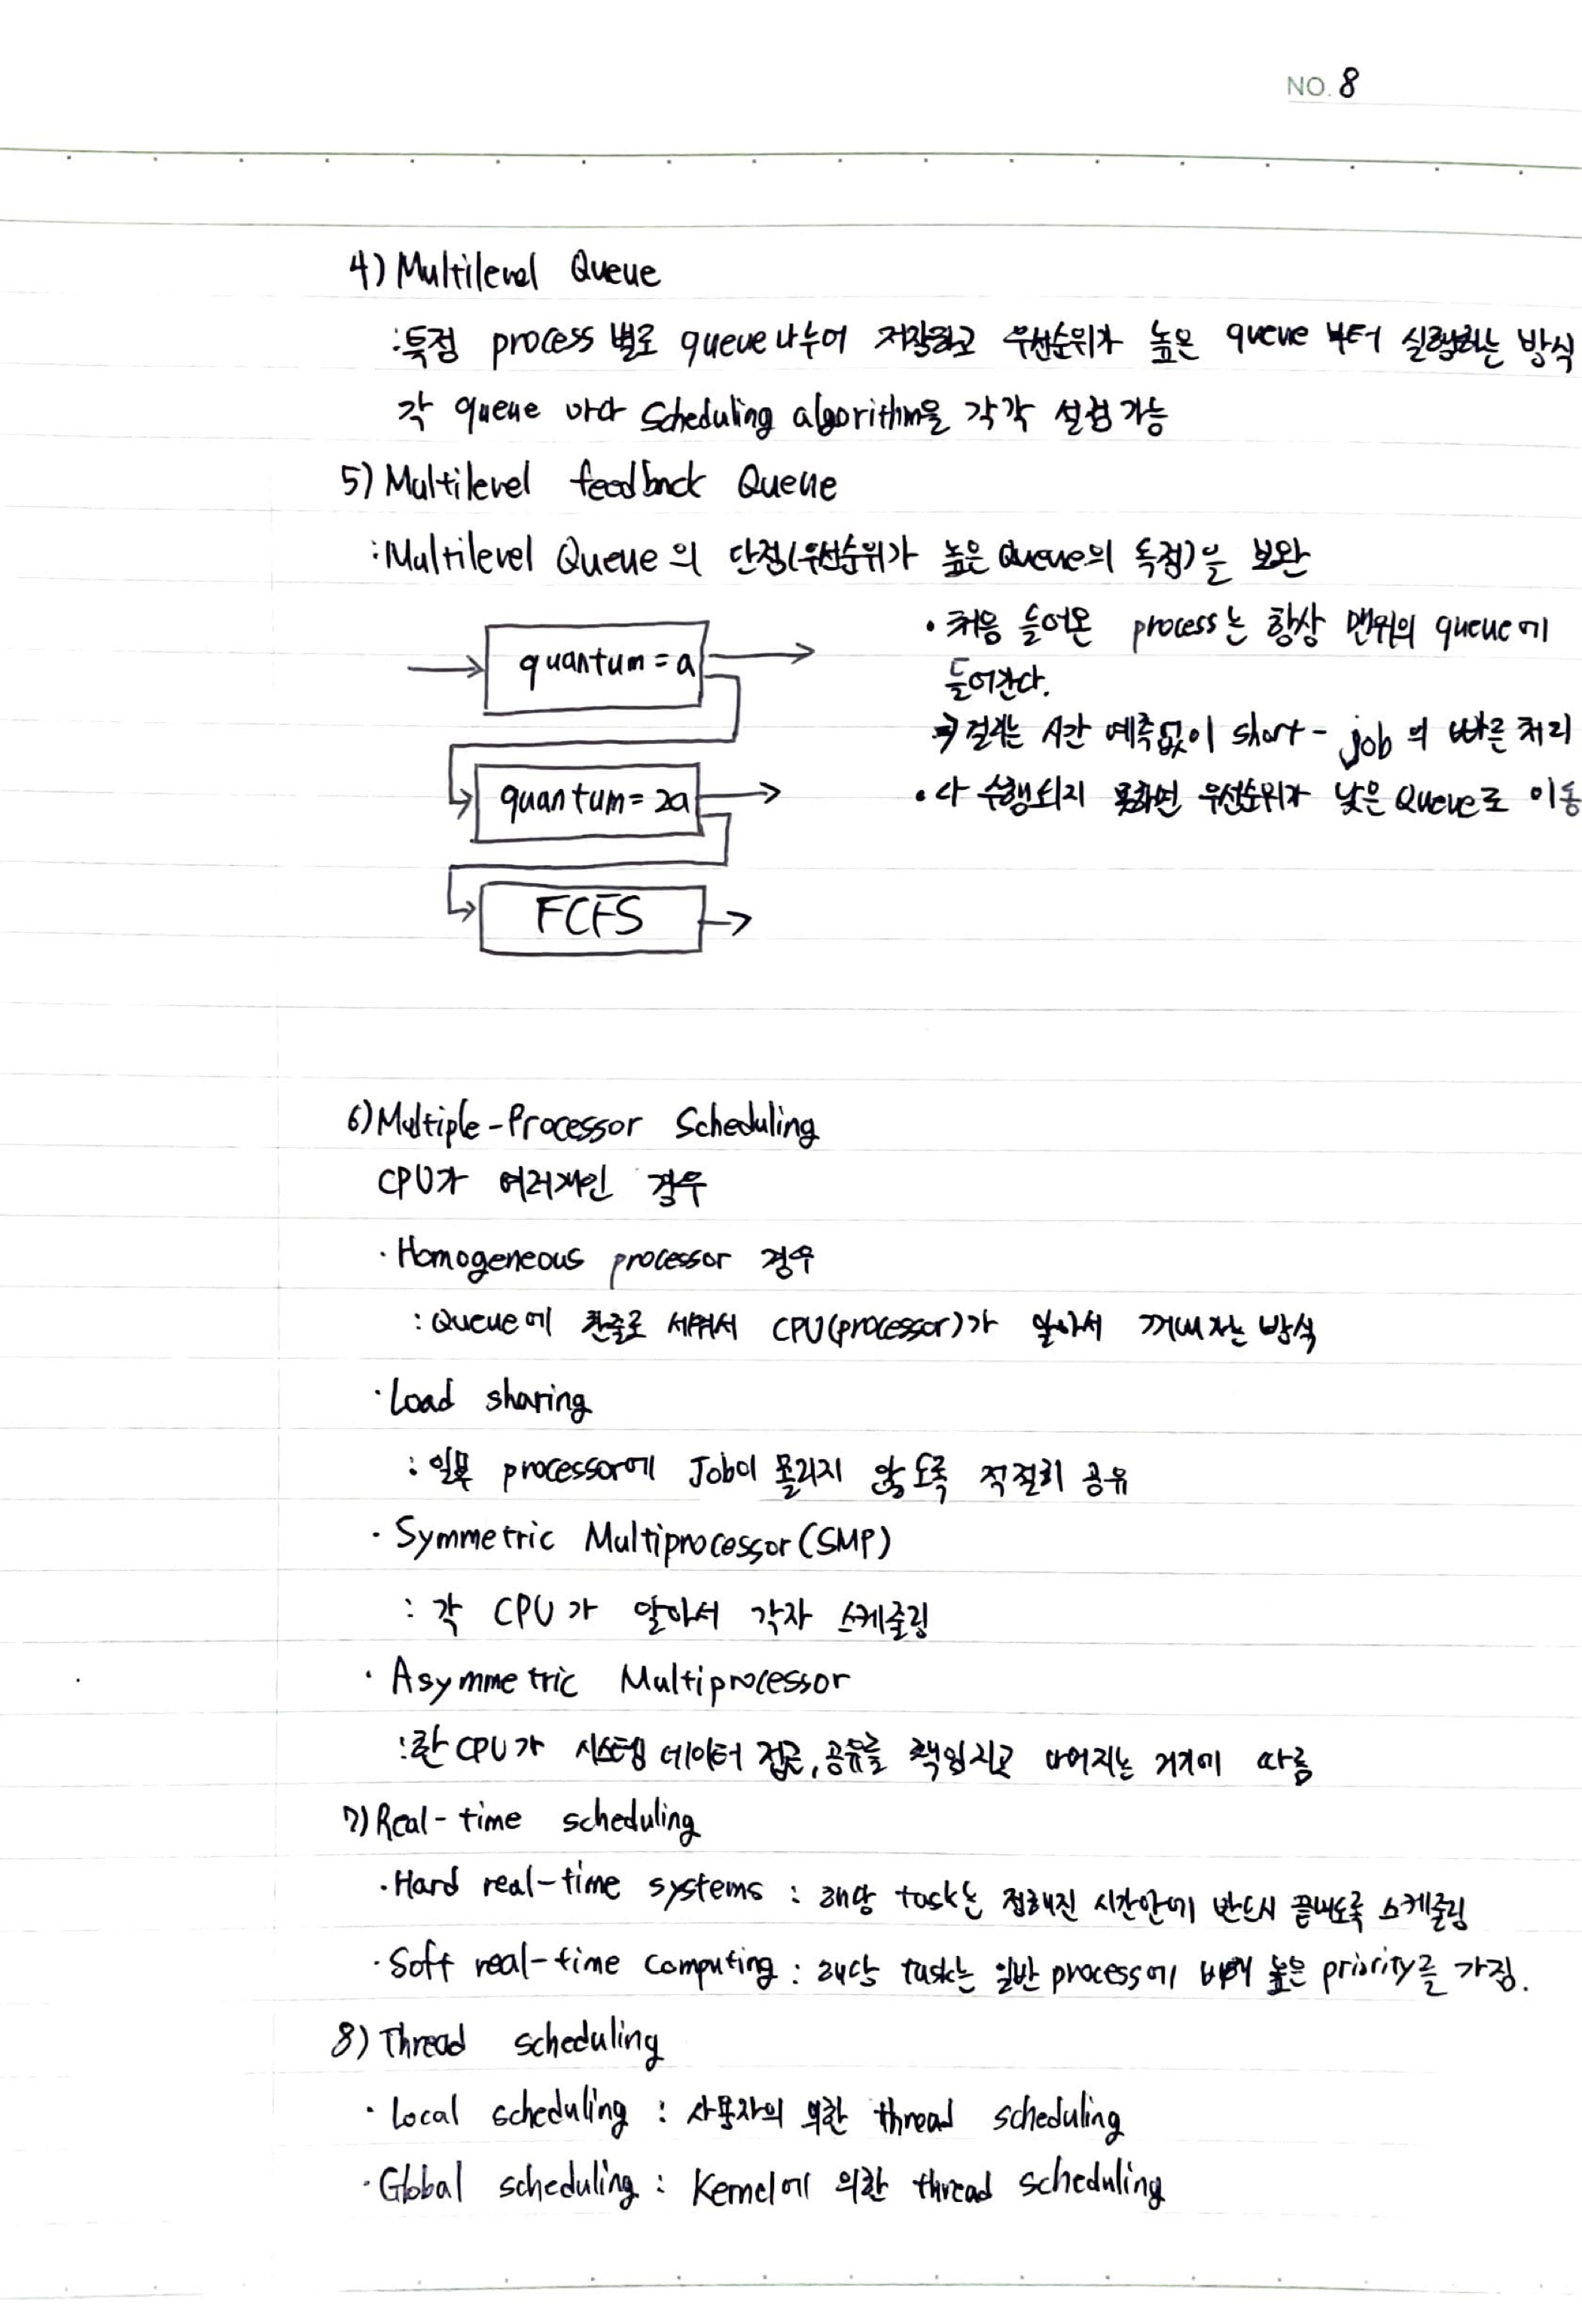 NO. 8
4) Multilevel Queue
:특정 process 별로 queue 나누어 저장하고 우선순위가 높은 queue 부터 실행하는 방식
각 queue 마다 scheduling algorithm을 각각 설정 가능
5) Multilevel feedback Queue
:Multilevel Queue의 단점(우선순위가 높은 Queue의 독점)을 보완
quantum = a
• 처음 들어온 process는 항상 맨위의 queue에
들어간다.
⇒ 걸리는 시간 예측없이 short-job의 빠른 처리
quantum = 2a
• 다 수행되지 못하면 우선순위가 낮은 Queue로 이동
FCFS
6) Multiple-Processor Scheduling
CPU가 여러개인 경우
· Homogeneous processor 경우
: Queue에 한줄로 세워서 CPU(processor)가 알아서 꺼내가는 방식
· Load sharing
: 일부 processor에 Job이 몰리지 않도록 적절히 공유
· Symmetric Multiprocessor(SMP)
: 각 CPU가 알아서 각자 스케줄링
· Asymmetric Multiprocessor
:한 CPU가 시스템 데이터 접근, 공유를 책임지고 나머지는 거기에 따름
7) Real-time scheduling
· Hard real-time systems : 해당 task는 정해진 시간안에 반드시 끝내도록 스케줄링
· Soft real-time computing : 해당 task는 일반 process에 비해 높은 priority를 가짐.
8) Thread scheduling
· Local scheduling : 사용자의 의한 thread scheduling
· Global scheduling : Kernel에 의한 thread scheduling